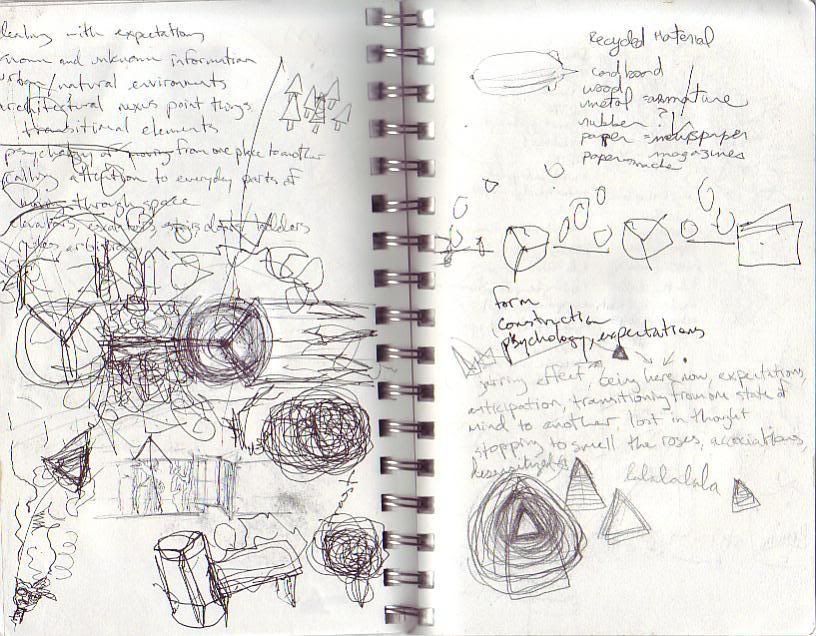 dealing with expectations
known and unknown information
urban/natural environments
architectural nexus point things
transitional elements
psychology of moving from one place to another
calling attention to everyday parts of
moving through space
elevators, escalators, stairs, doors, ladders
Recycled Material
cardboard
wood
metal = armature
rubber ?
paper = newspaper
magazines
paper mache
form
construction
psychology, expectations
jarring effect, being here now, expectations,
anticipation, transitioning from one state of
mind to another lost in thought
stopping to smell the roses, associations,
desensitized
lalalalala